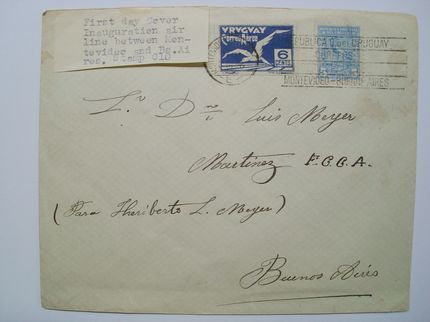 First day Cover
Inauguration air
line between Mon-
tevideo and Bs.Ai
res. Stamp C10
URUGUAY
Correo Aereo
6
REPUBLICA O. DEL URUGUAY
5
MONTEVIDEO-BUENOS AIRES
Luis Meyer
Martinez F.C.C.A.
(Para Heriberto L. Meyer)
Buenos Aires